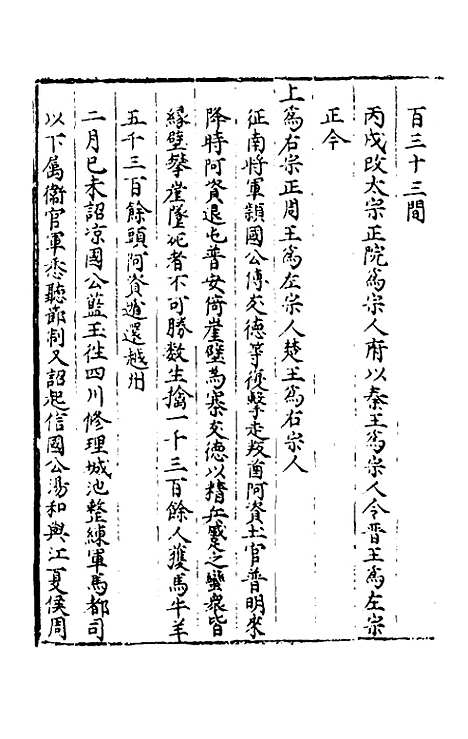 百三十三間
丙戌改太宗正院爲宗人府以秦王爲宗人令晋王爲左宗
正今
上爲右宗正周王爲左宗人楚王爲右宗人
征南將軍頴國公傅友德等復擊走叛酋阿資土官普明來
降時阿資退屯普安倚崖壁爲寨友德以精兵蹙之蠻衆皆
縁壁攀崖墜死者不可勝数生擒一千三百餘人獲馬牛羊
五千三百餘頭阿資遁還越州
二月己未詔凉國公藍玉徃四川修理城池整練軍馬都司
以下属衞官軍悉聽節制又詔起信國公湯和與江夏侯周